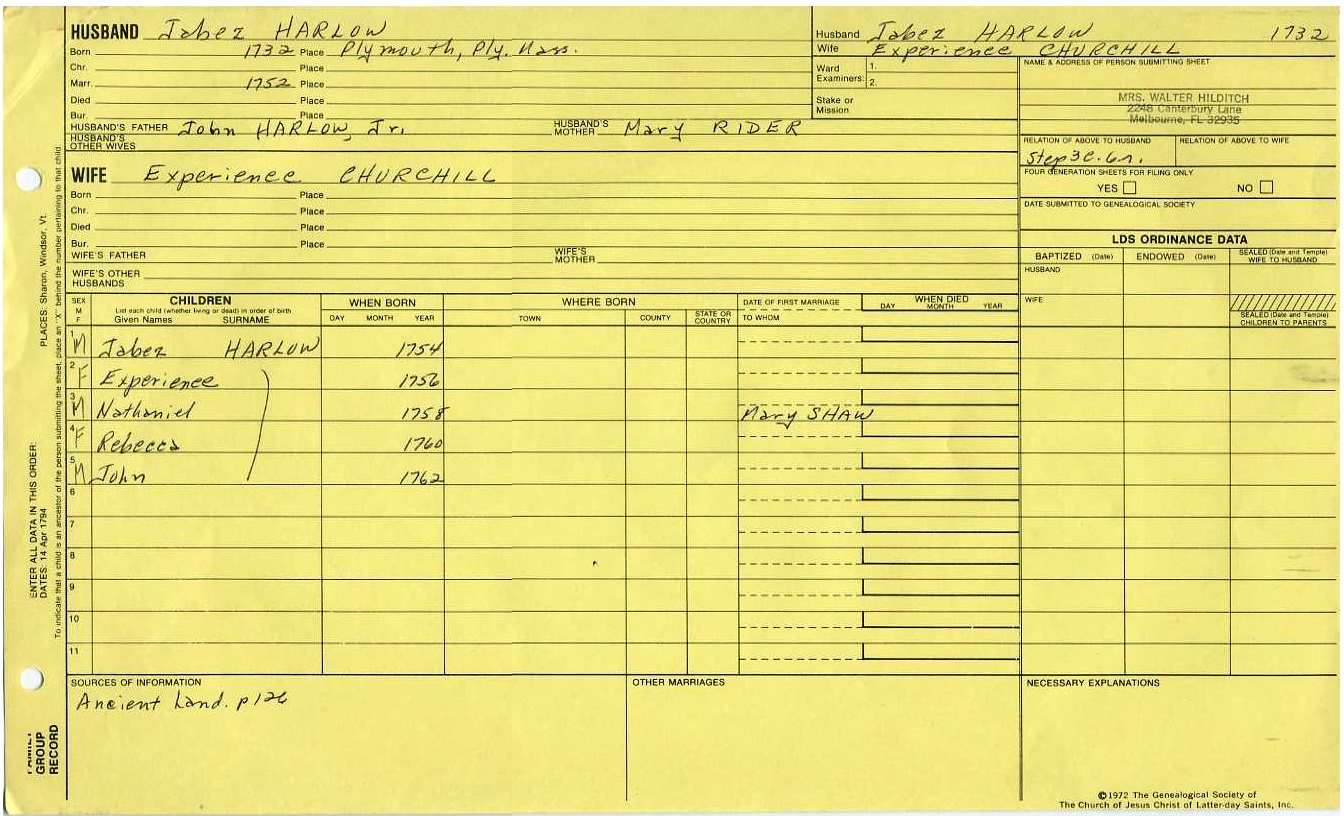 HUSBAND Jabez HARLOW
Born 1732 Place Plymouth, Ply. Mass.
Chr. Place
Marr. 1752 Place
Died Place
Bur. Place
HUSBAND'S FATHER John HARLOW, Jr. HUSBAND'S MOTHER Mary RIDER
HUSBAND'S OTHER WIVES
WIFE Experience CHURCHILL
Born Place
Chr. Place
Died Place
Bur. Place
WIFE'S FATHER WIFE'S MOTHER
WIFE'S OTHER HUSBANDS
Husband Jabez HARLOW 1732
Wife Experience CHURCHILL
Ward Examiners: 1.
2.
Stake or Mission
NAME & ADDRESS OF PERSON SUBMITTING SHEET
MRS. WALTER HILDITCH
2248 Canterbury Lane
Melbourne, FL 32935
RELATION OF ABOVE TO HUSBAND RELATION OF ABOVE TO WIFE
Step 3C. 6r.
FOUR GENERATION SHEETS FOR FILING ONLY
YES NO
DATE SUBMITTED TO GENEALOGICAL SOCIETY
LDS ORDINANCE DATA
BAPTIZED (Date) ENDOWED (Date) SEALED (Date and Temple) WIFE TO HUSBAND
HUSBAND
WIFE
SEALED (Date and Temple) CHILDREN TO PARENTS
SEX M F
CHILDREN
List each child (whether living or dead) in order of birth
Given Names SURNAME
WHEN BORN
DAY MONTH YEAR
WHERE BORN
TOWN COUNTY STATE OR COUNTRY
DATE OF FIRST MARRIAGE
TO WHOM
WHEN DIED
DAY MONTH YEAR
1 M Jabez HARLOW 1754
2 F Experience 1756
3 M Nathaniel 1758 Mary SHAW
4 F Rebecca 1760
5 M John 1762
6
7
8
9
10
11
SOURCES OF INFORMATION
Ancient Land. p126
OTHER MARRIAGES
NECESSARY EXPLANATIONS
©1972 The Genealogical Society of
The Church of Jesus Christ of Latter-day Saints, Inc.
PLACES: Sharon, Windsor, Vt.
ENTER ALL DATA IN THIS ORDER:
DATES: 14 Apr 1794
To indicate that a child is an ancestor of the person submitting the sheet, place an "X" behind the number pertaining to that child.
FAMILY GROUP RECORD